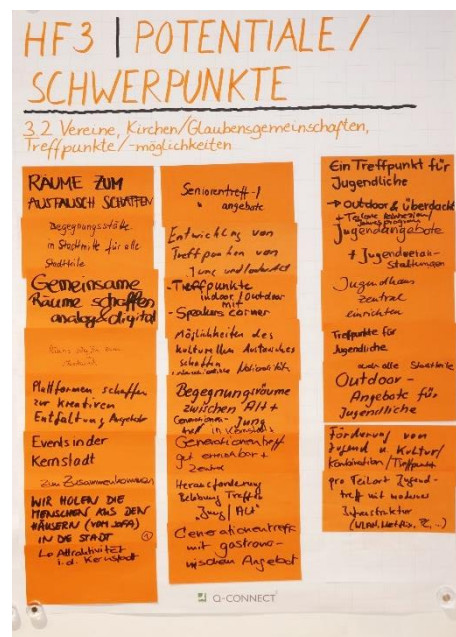 HF3 | POTENTIALE /
SCHWERPUNKTE
3.2 Vereine, Kirchen/Glaubensgemeinschaften,
Treffpunkte/-möglichkeiten
RÄUME ZUM
AUSTAUSCH SCHAFFEN
Begegnungsstätte
in Stadtmitte für alle
Stadtteile
Gemeinsame
Räume schaffen
analog & digital
Plattformen schaffen
zur kreativen
Entfaltung Angebote
Events in der
Kernstadt
zum Zusammenkommen
WIR HOLEN DIE
MENSCHEN AUS DEN
HÄUSERN (VOM SOFA)
IN DIE STADT
↳ Attraktivität
i.d. Kernstadt
Seniorentreff-/
angebote
Entwicklung von
Treffpunkten von
Jung und
- Treffpunkte
indoor/outdoor
mit
- Speakers corner
Möglichkeiten des
kulturellen Austausches
schaffen
Begegnungsräume
zwischen Alt +
Jung
Generationentreff
gut erreichbar +
Zentral
Herausforderung
Treffen
"Jung / Alt"
Generationentreff
mit gastrono-
mischem Angebot
Ein Treffpunkt für
Jugendliche
→ Outdoor & überdacht
Jugendangebote
+ Jugendveran-
staltungen
Jugendhaus
zentral
einrichten
Treffpunkte für
Jugendliche
auch alle Stadtteile
Outdoor-
Angebote für
Jugendliche
Förderung von
Jugend u. Kultur/
Kombination/Treffpunkt
pro Teilort Jugend-
treff mit moderner
Infrastruktur
(WLAN, Netflix, PC, ...)
Q-CONNECT